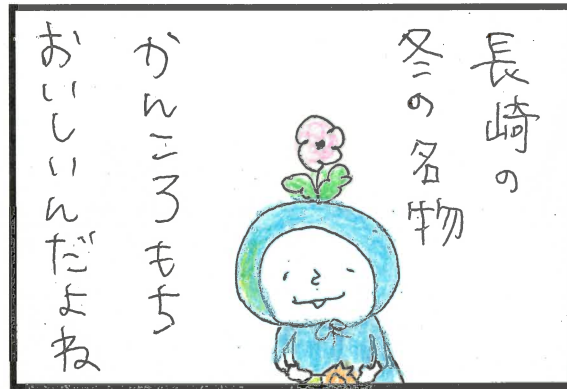 長崎の
冬の名物
かんころもち
おいしいんだよね